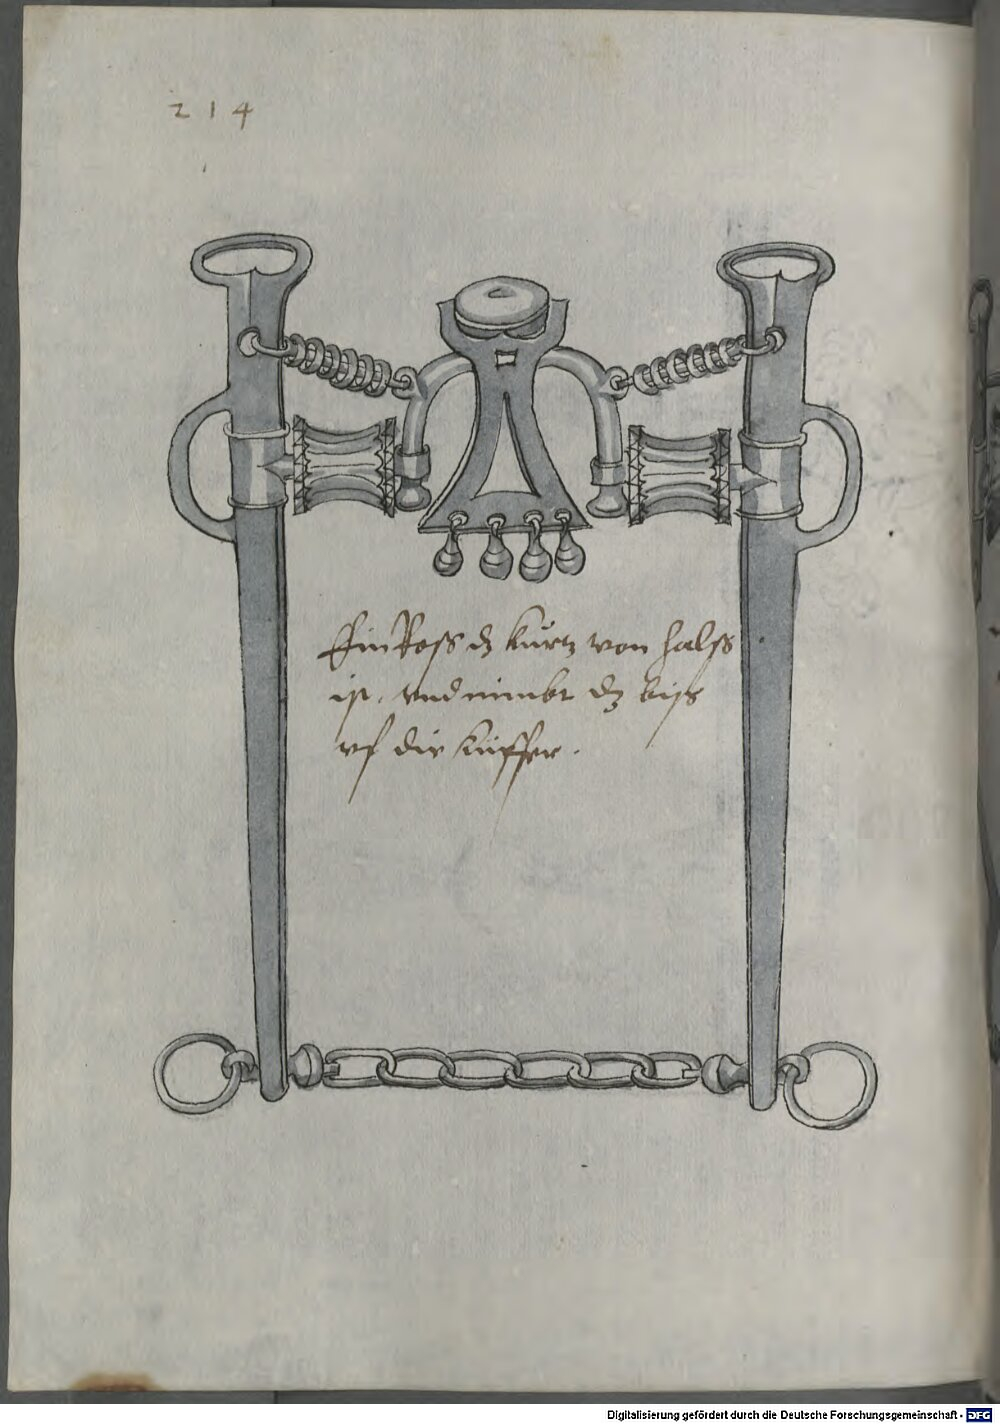 214
Ein Ross dz kurtz von halss
ist. vnd nimbt dz biss
vf die küffer.
Digitalisierung gefördert durch die Deutsche Forschungsgemeinschaft - DFG